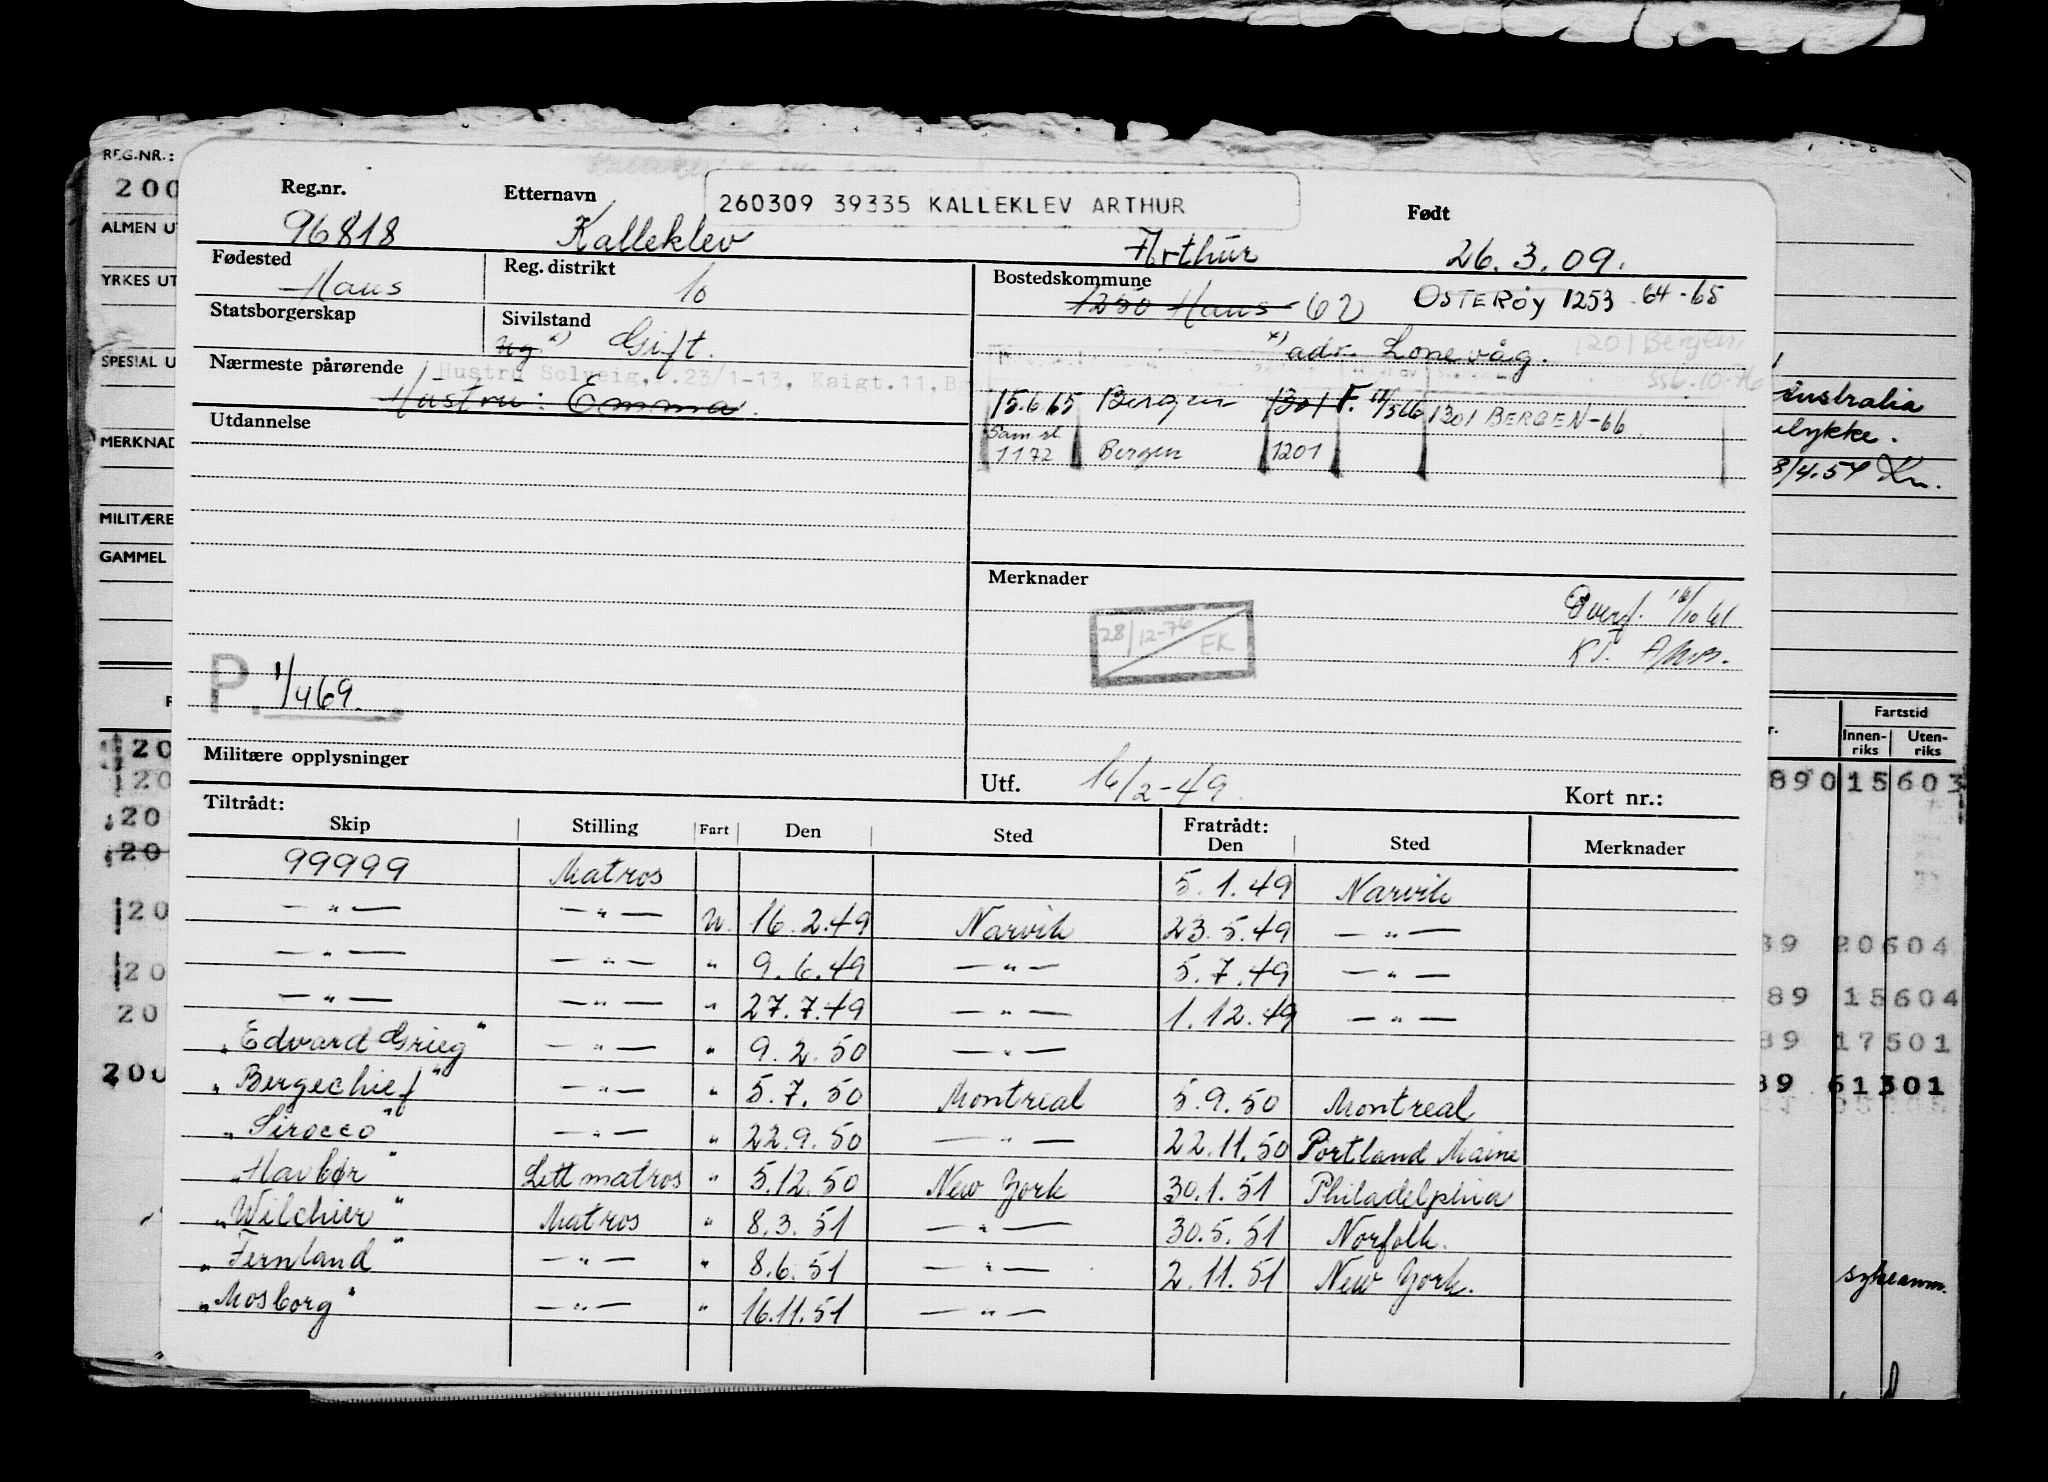 REG.NR.:
200
ALMEN UT
YRKES UT
SPESIAL U
MERKNAD
MILITÆRE
GAMMEL
Reg.nr.
96818
Etternavn
Kalleklev
260309 39335 KALLEKLEV ARTHUR
Arthur
Født
26.3.09.
Fødested
Haus
Reg. distrikt
10
Bostedskommune
1250 Haus 62 OSTERØY 1253 64-65
Statsborgerskap
Sivilstand
Ug. x) Gift.
x) adr. Lonevåg. 1201 Bergen,
Nærmeste pårørende
Hustru Solveig, .23/1-13, Kaigt.11, B
Hustru: Emma.
ssb.10-76
15.6 65 Bergen 1301 F. 1301 BERGEN-66
Sam st. 1172 Bergen 1201
Utdannelse
Australia
ulykke.
8/4.54 Kn.
Merknader
28/12-76 EK
Overf. 16/10 61
P. 1/469.
Militære opplysninger
Utf. 16/2-49
Kort nr.:
Fartstid
Innen-riks Uten-riks
Tiltrådt:
Skip Stilling Fart Den Sted Fratrådt: Den Sted Merknader
99999 Matros 5.1.49 Narvik
—"— —"— U. 16.2.49 Narvik 23.5.49 —"—
—"— —"— " 9.6.49 —"— 5.7.49 —"—
—"— —"— " 27.7.49 —"— 1.12.49 —"—
"Edvard Grieg" —"— " 9.2.50 —"—
"Bergechief" —"— " 5.7.50 Montreal 5.9.50 Montreal
"Sirocco" —"— " 22.9.50 —"— 22.11.50 Portland Maine
"Havbør" Lettmatros " 5.12.50 New York 30.1.51 Philadelphia
"Wilchier" Matros " 8.3.51 —"— 30.5.51 Norfolk.
"Fernland" —"— " 8.6.51 —"— 2.11.51 New York.
"Mosborg" —"— " 16.11.51 —"—
89015603
89 20604
89 15604
89 17501
89 61301